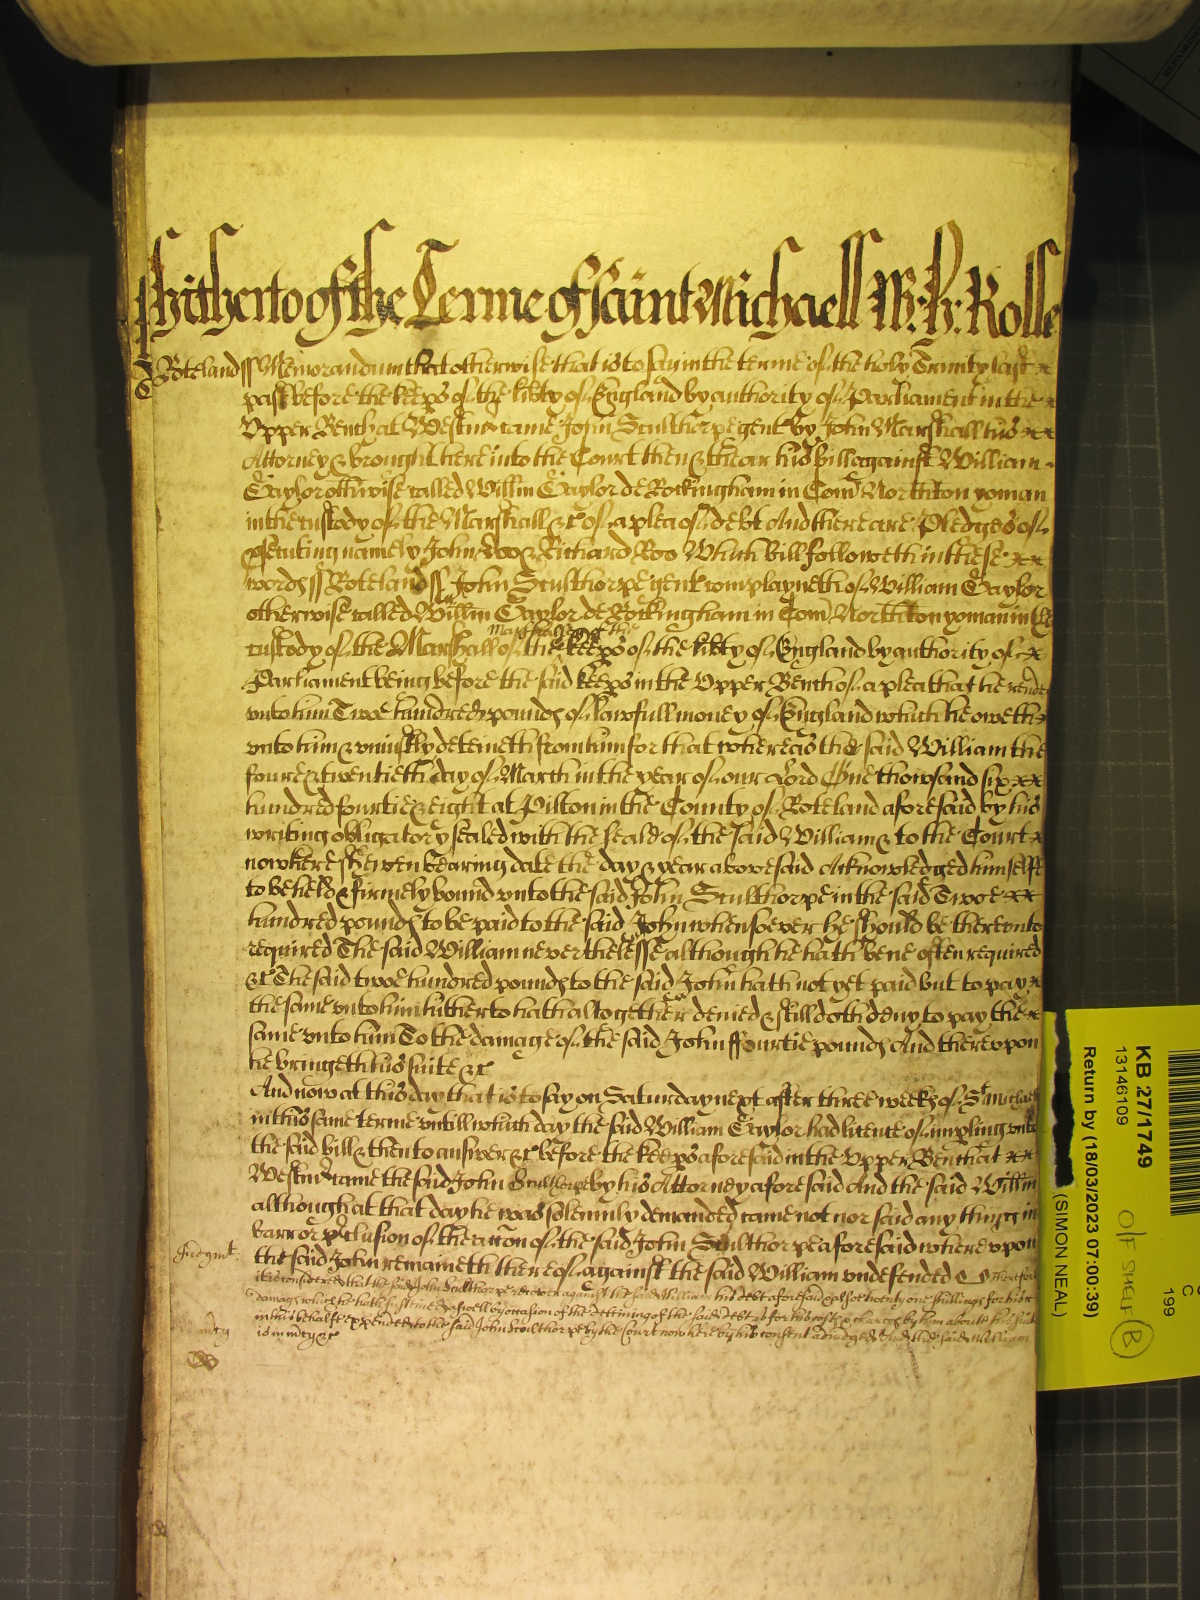 hitherto of the Terme of Saint Michaell W: H: Rolle
Roteland ss Memorandum that otherwise that is to say in the terme of the holy Trinity last
past before the keeps of the libty of England by authority of Parliament in the
Upper Bench at Westmr came John Sculthorpe gent by John Marshall his
Attorney & brought here into the Court then & thear his bill against William
Taylor otherwise called Willm Taylor de Rockingham in Com Northton yoman
in the custody of the Marshall &c of a plea of debt And there are Pledges of
psecuting namely John Doo & Richard Roo Which bill followeth in these
words ss Roteland ss John Sculthorpe gent complayneth of William Taylor
otherwise called Willm Taylor de Rockingham in Com Northton yoman in the
Marshalsey of the
custody of the Marshall of the keeps of the libty of England by authority of
Parliament being before the said keeps in the Upper Bench of a plea that he render
unto him Twoe hundred pounds of lawfull money of England which he oweth
unto him & uniustly deteineth from him for that whereas the said William the
foure & twentieth day of March in the year of our Lord One thowsand six
hundred fourtie & eight at Pilton in the County of Roteland aforesaid by his
writing obligatory sealed with the seale of the said William & to the Court
now here shewen bearing date the day & year abovesaid Acknowledged himselfe
to be held & firmely bound unto the said John Sculthorpe in the said Twoe
hundred pounds to be paid to the said John whensoever he should be thereunto
required The said William neverthelesse although he hath bene often required
&c The said twoe hundred pounds to the said John hath not yet paid but to pay
the same unto him hitherto hath altogether denied & still doth deny to pay the
same unto him To the damage of the said John ffourtie pounds And thereupon
he bringeth his suite &c
And now at this day that is to say on Saturday next after three weeks of St Michael
in this same terme untill which day the said William Taylor had licence of impling unto
the said bill & then to answer &c before the keeps aforesaid in the Upper Bench at
Westmr came the said John Sculthorpe by his Attorney aforesaid And the said Willm
although at that day he was solemnly demanded came not nor said any thing in
barr or pclusion of the action of the said John Sculthorpe aforesaid whereupon
the said John remaineth thereof against the said William undefended Therefore
Judgmt:
it is considered that the said John Sculthorpe recover against the said William his debt aforesaid & also twenty one shillings for his
damages which he hath susteined aswell by occasion of the deteining of the said debt as for his costs & charges by him about his suite
in this behalfe expended to the said John Sculthorpe by the Court now here by his consent adiudged And the said William
mcy
is in mcy &c
KB 27/1749
13146109
Return by (18/03/2023 07:00:39)
(SIMON NEAL)
C
199
B